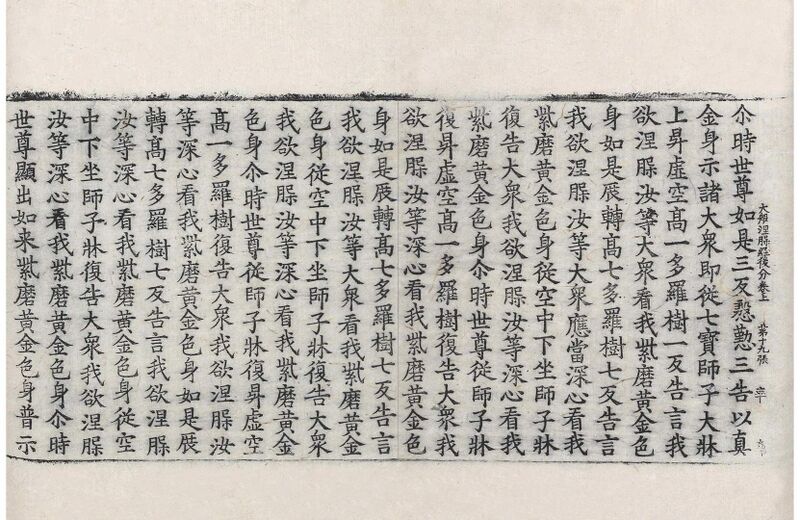 尒時世尊如是三反慇懃三告以真
大般涅槃經後分卷上　第十九張
金身示諸大衆即從七寶師子大牀
上昇虛空高一多羅樹一反告言我
欲涅槃汝等大衆看我紫磨黃金色
身如是展轉高七多羅樹七反告言
我欲涅槃汝等大衆應當深心看我
紫磨黃金色身從空中下坐師子牀
復告大衆我欲涅槃汝等深心看我
紫磨黃金色身尒時世尊從師子牀
復昇虛空高一多羅樹復告大衆我
欲涅槃汝等深心看我紫磨黃金色
身如是展轉高七多羅樹七反告言
我欲涅槃汝等大衆看我紫磨黃金
色身從空中下坐師子牀復告大衆
我欲涅槃汝等深心看我紫磨黃金
色身尒時世尊從師子牀復昇虛空
高一多羅樹復告大衆我欲涅槃汝
等深心看我紫磨黃金色身如是展
轉高七多羅樹七反告言我欲涅槃
汝等深心看我紫磨黃金色身從空
中下坐師子牀復告大衆我欲涅槃
汝等深心看我紫磨黃金色身尒時
世尊顯出如来紫磨黃金色身普示